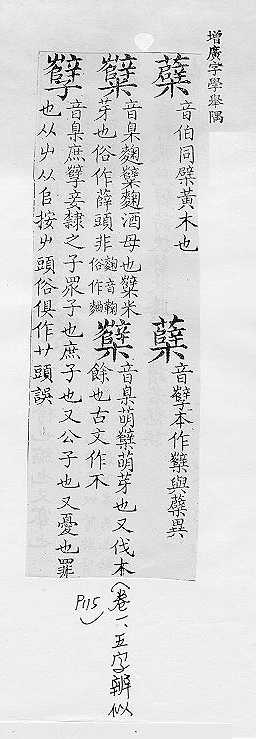 增廣字學舉隅
蘗音伯同檗黃木也
蘖音孽本作櫱與蘗異
糵音臬麴糵麴酒母也糵米
芽也俗作薛頭非麴音鞠俗作麯
櫱音臬萌櫱萌芽也又伐木
餘也古文作不
孼音臬庶孼妾隸之子眾子也庶子也又公子也又憂也罪
也从屮从㠯按屮頭俗俱作艹頭誤
(卷一、五字辨似
P115)